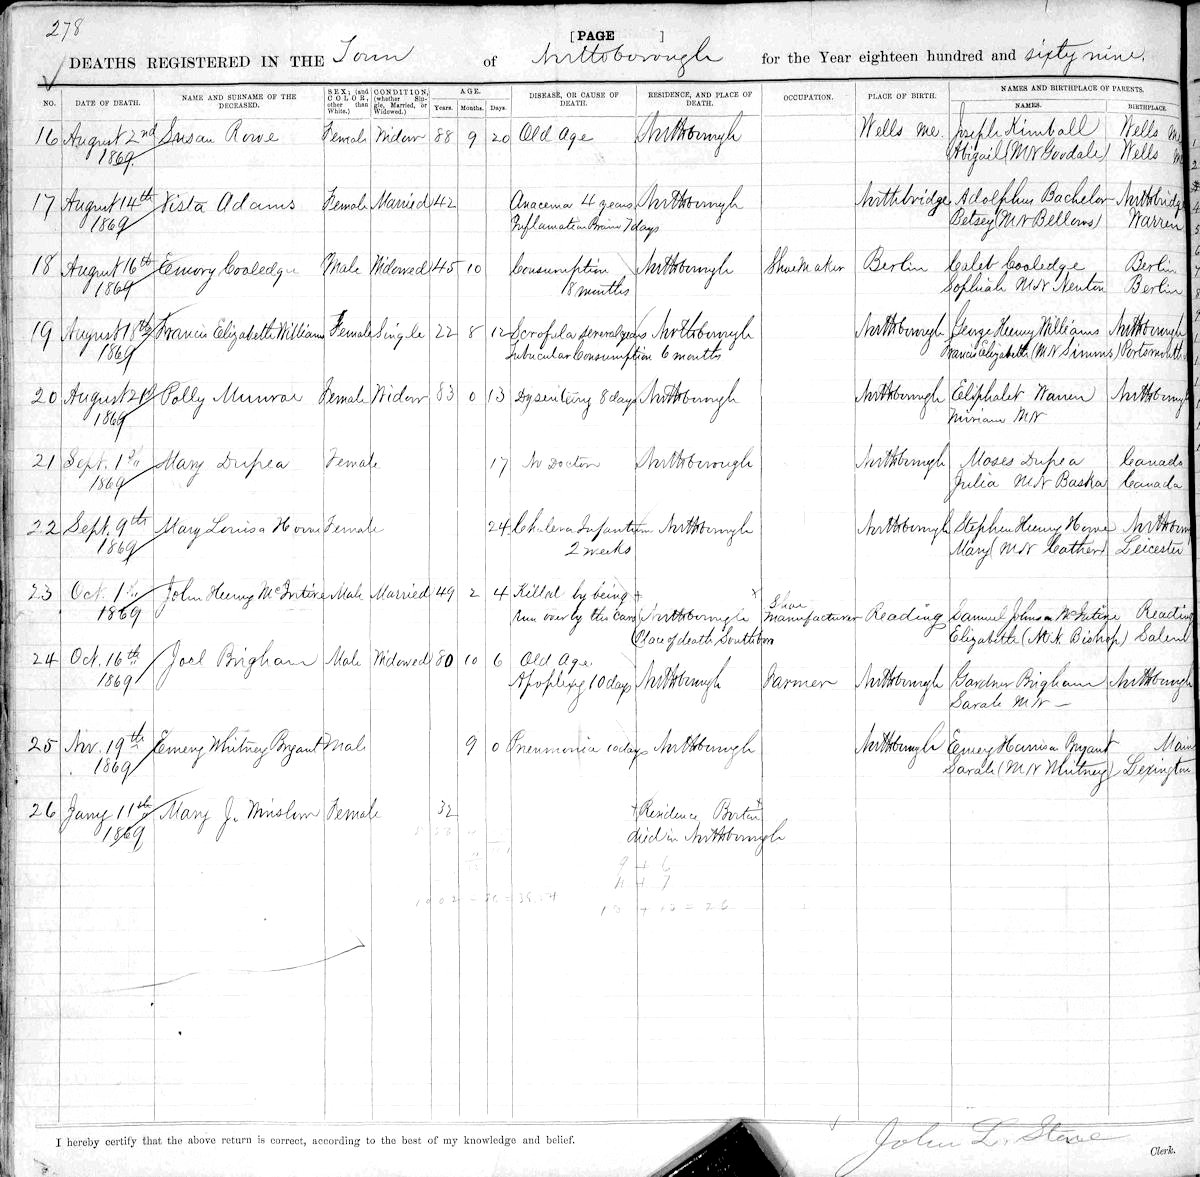 278
[PAGE ]
DEATHS REGISTERED IN THE Town of Northborough for the Year eighteen hundred and sixty nine.
NO. DATE OF DEATH. NAME AND SURNAME OF THE DECEASED. SEX; (and COLOR, other than White.) CONDITION, (whether Single, Married, or Widowed.) AGE. Years. Months. Days. DISEASE, OR CAUSE OF DEATH. RESIDENCE, AND PLACE OF DEATH. OCCUPATION. PLACE OF BIRTH. NAMES AND BIRTHPLACE OF PARENTS. NAMES. BIRTHPLACE
16 August 2nd Susan Rowe Female Widow 88 9 20 Old Age Northborough Wells Me. Joseph Kimball Wells Me
1869. Abigail (MN Goodale) Wells Me
17 August 14th Vista Adams Female Married 42 Anacema 4 years Northborough Northbridge Adolphus Bachelor Northbridge
1869 Inflamation Brain 7 days Betsey (MN Bellows) Warren
18 August 16th Emory Cooledge Male Widowed 45 10 Consumption Northborough Shoe Maker Berlin Calet Cooledge Berlin
1869 18 months Sophiah MN Newton Berlin
19 August 18th Francis Elizabeth Williams Female Single 22 8 12 Scrofula several years Northborough Northborough George Henry Williams Northborough
1869 Tubucular Consumption 6 months Francis Elizabeth (MN Simms) Portsmouth
20 August 21st Polly Munroe Female Widow 83 0 13 Dysentery 8 days Northborough Northborough Eliphalet Warren Northborough
1869 Miriam MN
21 Sept. 1st Mary Dupea Female 17 No Doctor Northborough Northborough Moses Dupea Canada
1869 Julia MN Baska Canada
22 Sept. 9th Mary Louisa Howe Female 24 Cholera Infantum Northborough Northborough Stephen Henry Howe Northboro
1869 2 weeks Mary (MN Cather) Leicester
23 Oct. 1st John Henry McIntire Male Married 49 2 4 Killed by being + x Shoe
1869 run over by the Cars (Northborough Manufacturer Reading Samuel Johnson McIntire Reading
Place of death Southboro Elizabeth (M.N. Bishop) Salem
24 Oct. 16th Joel Brigham Male Widowed 80 10 6 Old Age
1869 Apoplexy 10 days Northborough Farmer Northborough Gardner Brigham Northborough
Sarah MN —
25 Nov. 19th Emery Whitney Bryant Male 9 0 Pneumonia 10 days Northborough Northborough Emery Harrison Bryant Main
1869 Sarah (MN Whitney) Lexington
26 Jany 11th Mary J. Winslow Female 32 + Residence Boston +
1869 died in Northborough
9 + 6
4 + 7
13 + 13 = 26
I hereby certify that the above return is correct, according to the best of my knowledge and belief.
John L. Stone
Clerk.